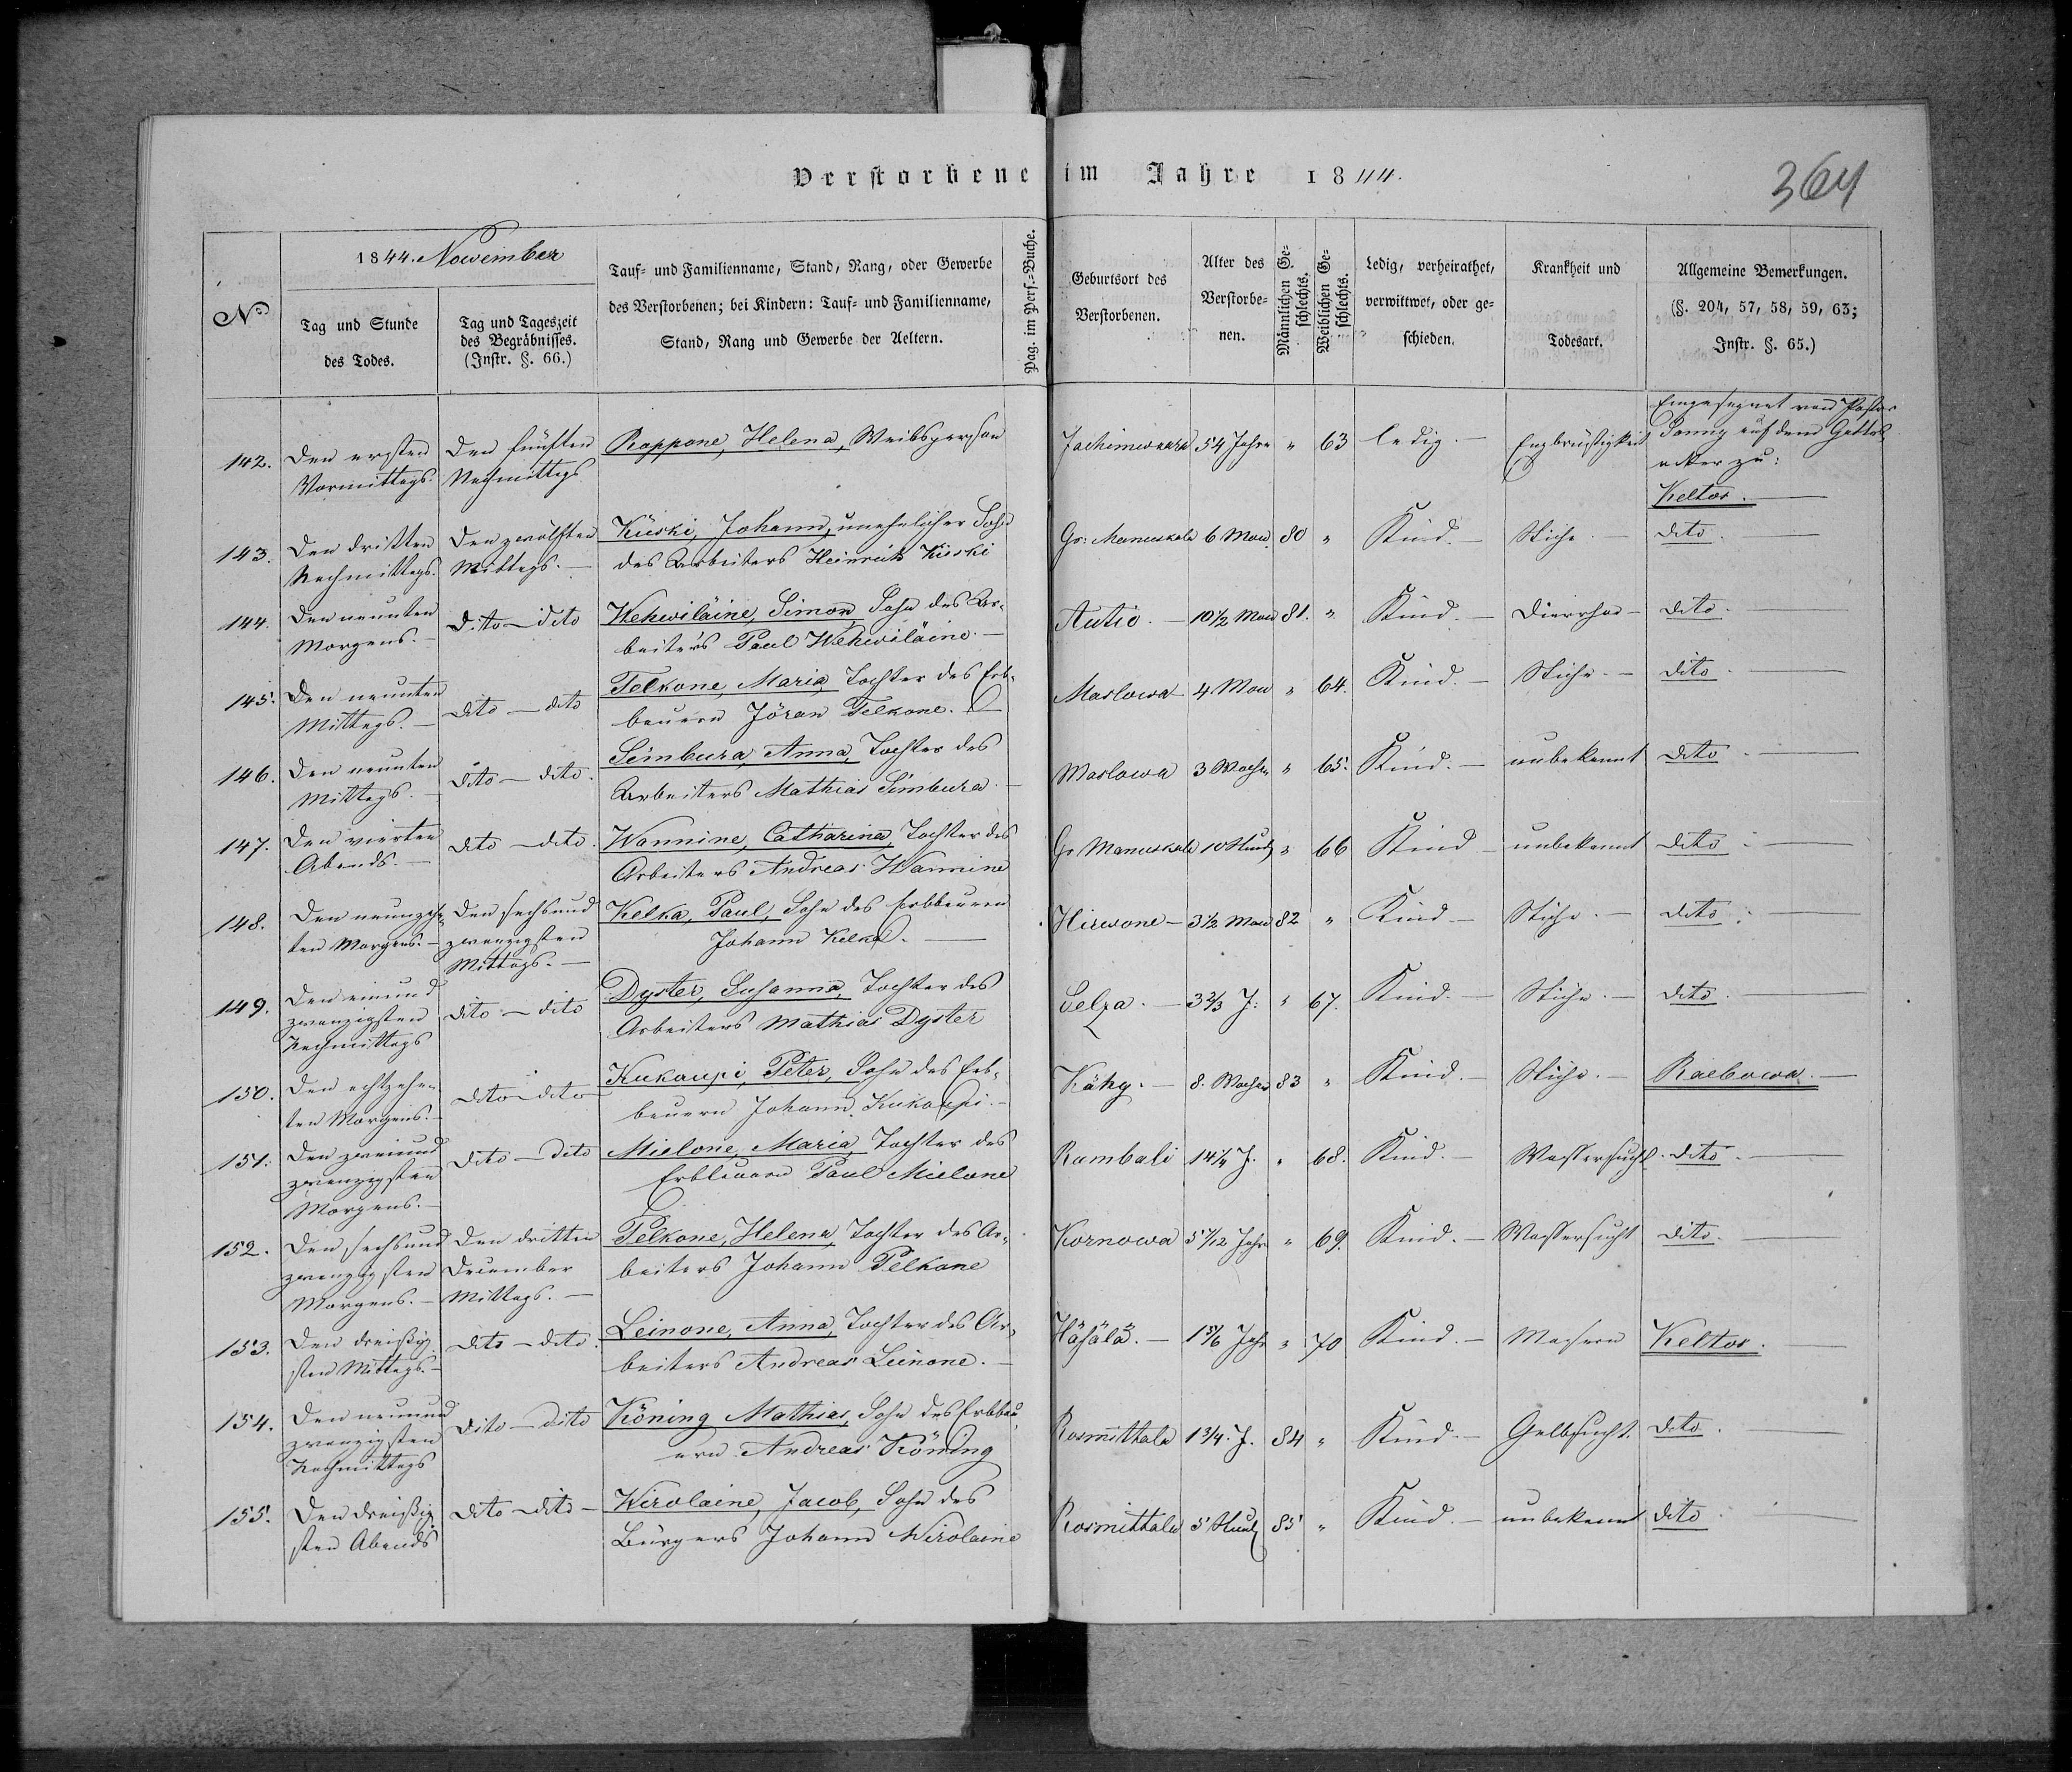 Verstorbene im Jahre 1844.
364
No
1844. November
Tag und Stunde
des Todes.
Tag und Tageszeit
des Begräbnisses.
(Instr. §. 66.)
Tauf- und Familienname, Stand, Rang, oder Gewerbe
des Verstorbenen; bei Kindern: Tauf- und Familienname,
Stand, Rang und Gewerbe der Aeltern.
Pag. im Pers.-Buche.
Geburtsort des
Verstorbenen.
Alter des
Verstorbe-
nen.
Männlichen Ge-
schlechts.
Weiblichen Ge-
schlechts.
Ledig, verheirathet,
verwittwet, oder ge-
schieden.
Krankheit und
Todesart.
Allgemeine Bemerkungen.
(§. 204, 57, 58, 59, 63;
Instr. §. 65.)
142.
Den ersten
Vormittags.
Den fünften
Nachmittags
Roppone, Helena, Weibsperson
Jachimwaara 54 Jahre " 63 ledig. — Engbrüstigkeit
Eingesegnet vom Pastor
auf dem Gottes
acker zu:
Keltos. —
143.
Den dritten
Nachmittags.
Den zwölften
Mittags. —
Küski, Johann, unehelicher Sohn
des Arbeiters Heinrich Kiiski
Gr: Manuskala 6 Mon. 80 " Kind. — dito. —
144.
Den neunten
Morgens. —
Dito — dito
Wehwiläine, Simon, Sohn des Ar-
beiters Paul Wehwiläine. —
Autio. — 10 1/2 Mon 81. " Kind. — Diarrhoe — dito. —
145.
Den neunten
Mittags. —
dito — dito
Telkone, Maria, Tochter des Erb-
bauern Jöran Telkone.
Maslowa 4 Mon " 64. Kind. — dito —
146.
Den neunten
Mittags. —
dito — dito.
Simbura, Anna, Tochter des
Arbeiters Mathias Simbura. —
Maslowa 3 Wochen " 65. Kind. — unbekannt dito. —
147.
Den vierten
Abends. —
dito — dito.
Wannine, Catharina, Tochter des
Arbeiters Andreas Wannine
Gr Manuskala 10 Stund " 66 Kind — unbekannt dito. —
148.
Den neunzehn-
ten Morgens. —
Den sechsund
zwanzigsten
Mittags. —
Kelka, Paul, Sohn des Erbbauern
Johann Kelka. —
Hirwone — 3 1/2 Mon 82 " Kind — dito. —
149.
Den einund
zwanzigsten
Nachmittags
dito — dito
Dyster, Susanna, Tochter des
Arbeiters Mathias Dyster
Selza. — 3 2/3 J. " 67. Kind. — dito. —
150.
Den achtzehn-
ten Morgens. —
dito — dito
Kukaupi, Peter, Sohn des Erb-
bauern Johann Kukaupi. —
Kähy. — 8. Wochen 83 " Kind. — Raebowa. —
151.
Den zweiund
zwanzigsten
Morgens. —
dito — dito
Mielone, Maria, Tochter des
Erbbauern Paul Mielone
Rambali 14 1/4 J. " 68. Kind. — Wassersucht. dito. —
152.
Den sechsund
zwanzigsten
Morgens. —
Den dritten
December
Mittags. —
Pelkone, Helena, Tochter des Ar-
beiters Johann Pelkone
Kornowa 5 1/12 Jahr " 69. Kind. — Wassersucht dito. —
153.
Den dreißig
sten Mittags. —
dito — dito.
Leinone, Anna, Tochter des Ar-
beiters Andreas Leinone. —
Häjälä. — 1 5/6 Jahr " 70 Kind. — Masern Keltos. —
154.
Den neunund
zwanzigsten
Nachmittags
dito — dito
Köning Mathias, Sohn des Erbbau-
ern Andreas Köning
Rosmittala 1 3/4. J. 84 " Kind. — Gelbsucht. dito. —
155.
Den dreißig
sten Abends
dito — dito —
Wirolaine, Jacob, Sohn des
Bürgers Johann Wirolaine
Rosmittala 5 Stund 85 " Kind. — unbekannt dito. —